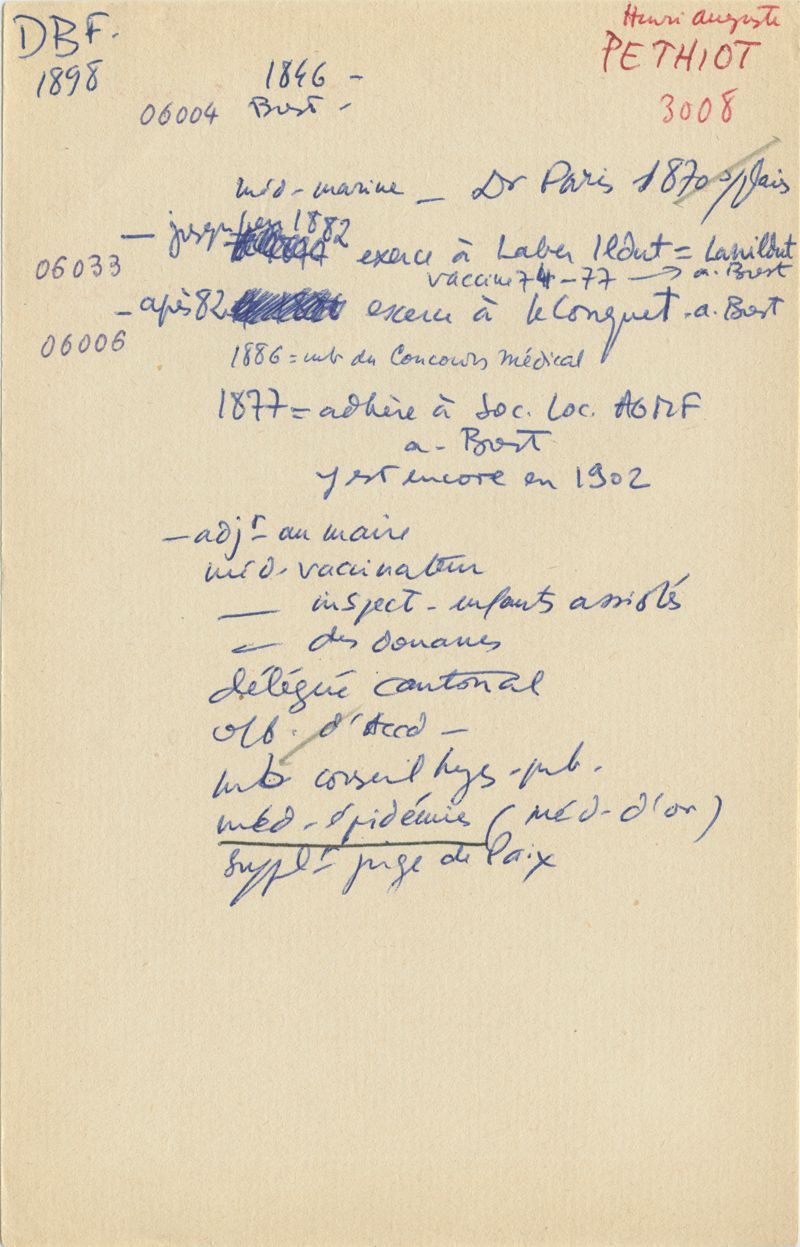 DBF.
1898
Henri Auguste
PETHIOT
3008
1846 -
06004 Brest -
méd-marine - Dr Paris 1870
- jusqu'en 1882
06033
exerce à Laber Ildut = Lanildut
vaccine 74-77 → a. Brest
- après 82 exerce à le Conquet - a. Brest
06006
1886 = mb du Concours Médical
1877 = adhère à Soc. Loc. AGMF
a - Brest
y est encore en 1902
- adjt au maire
méd-vaccinateur
— inspect - enfants assistés
— des Douanes
délégué cantonal
off. d'Acad -
mb conseil hyg - pub.
méd - épidémies (méd-d'or)
supplt juge de Paix